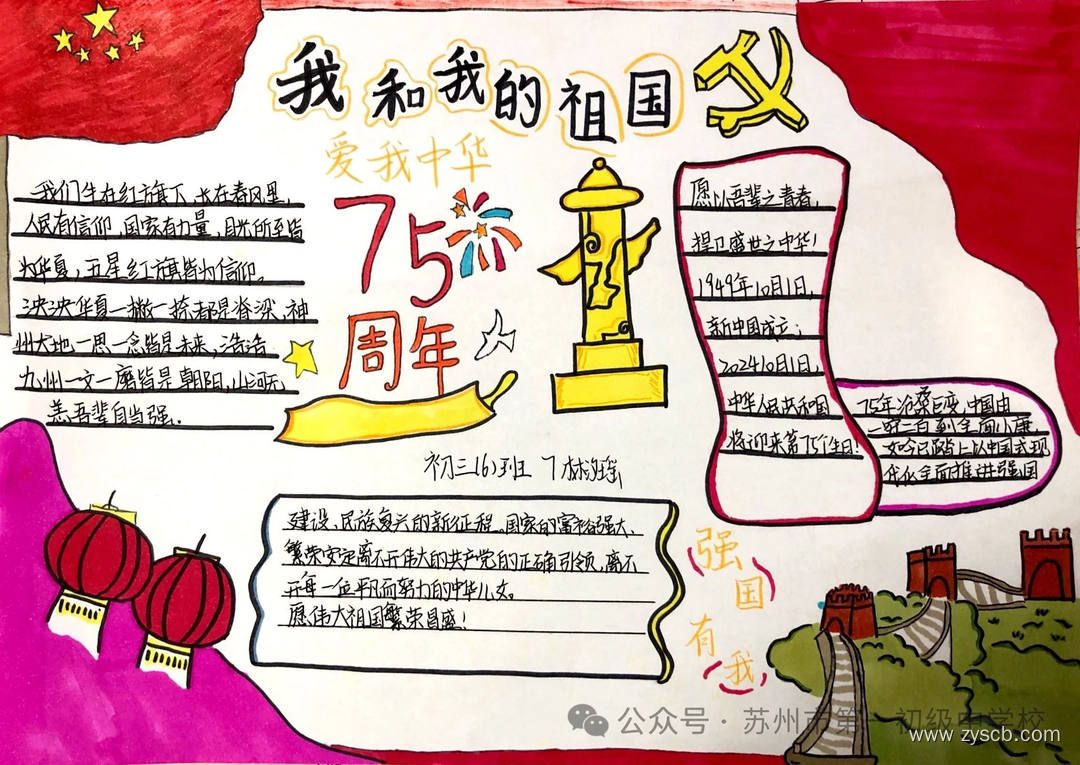 我和我的祖国
爱我中华
75
周年
我们生在红旗下,长在春风里,
人民有信仰,国家有力量,目光所至皆
为华夏,五星红旗皆为信仰。
泱泱华夏一撇一捺都是脊梁,神
州大地一思一念皆是未来,浩浩
九州一文一墨皆是朝阳,山河无
恙吾辈自当强.
愿以吾辈之青春,
捍卫盛世之中华!
1949年10月1日,
新中国成立;
2024年10月1日,
中华人民共和国
将迎来第75个生日!
75年沧桑巨变,中国由
一穷二白到全面小康,
如今已踏上以中国式现
代化全面推进强国
初三(6)班 7
建设、民族复兴的新征程。国家的富裕强大、
繁荣安定离不开伟大的共产党的正确引领,离不
开每一位平凡而努力的中华儿女。
愿伟大祖国繁荣昌盛!
强国
有我
公众号·苏州市第一初级中学校
www.zyscb.com